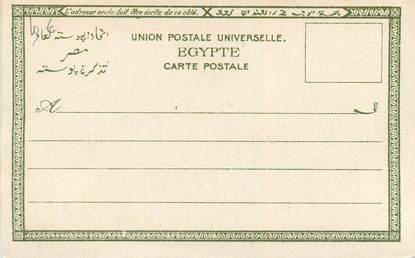 L'adresse seule doit être écrite de ce côté.
UNION POSTALE UNIVERSELLE.
EGYPTE
CARTE POSTALE
مصر
تذكرة بوسته
A
الى